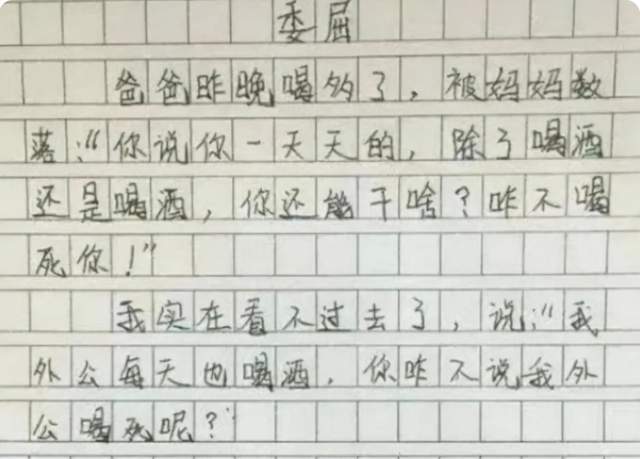 委屈
爸爸昨晚喝多了，被妈妈数
落：“你说你一天天的，除了喝酒
还是喝酒，你还能干啥？咋不喝
死你！”
我实在看不过去了，说：“我
外公每天也喝酒，你咋不说我外
公喝死呢？”